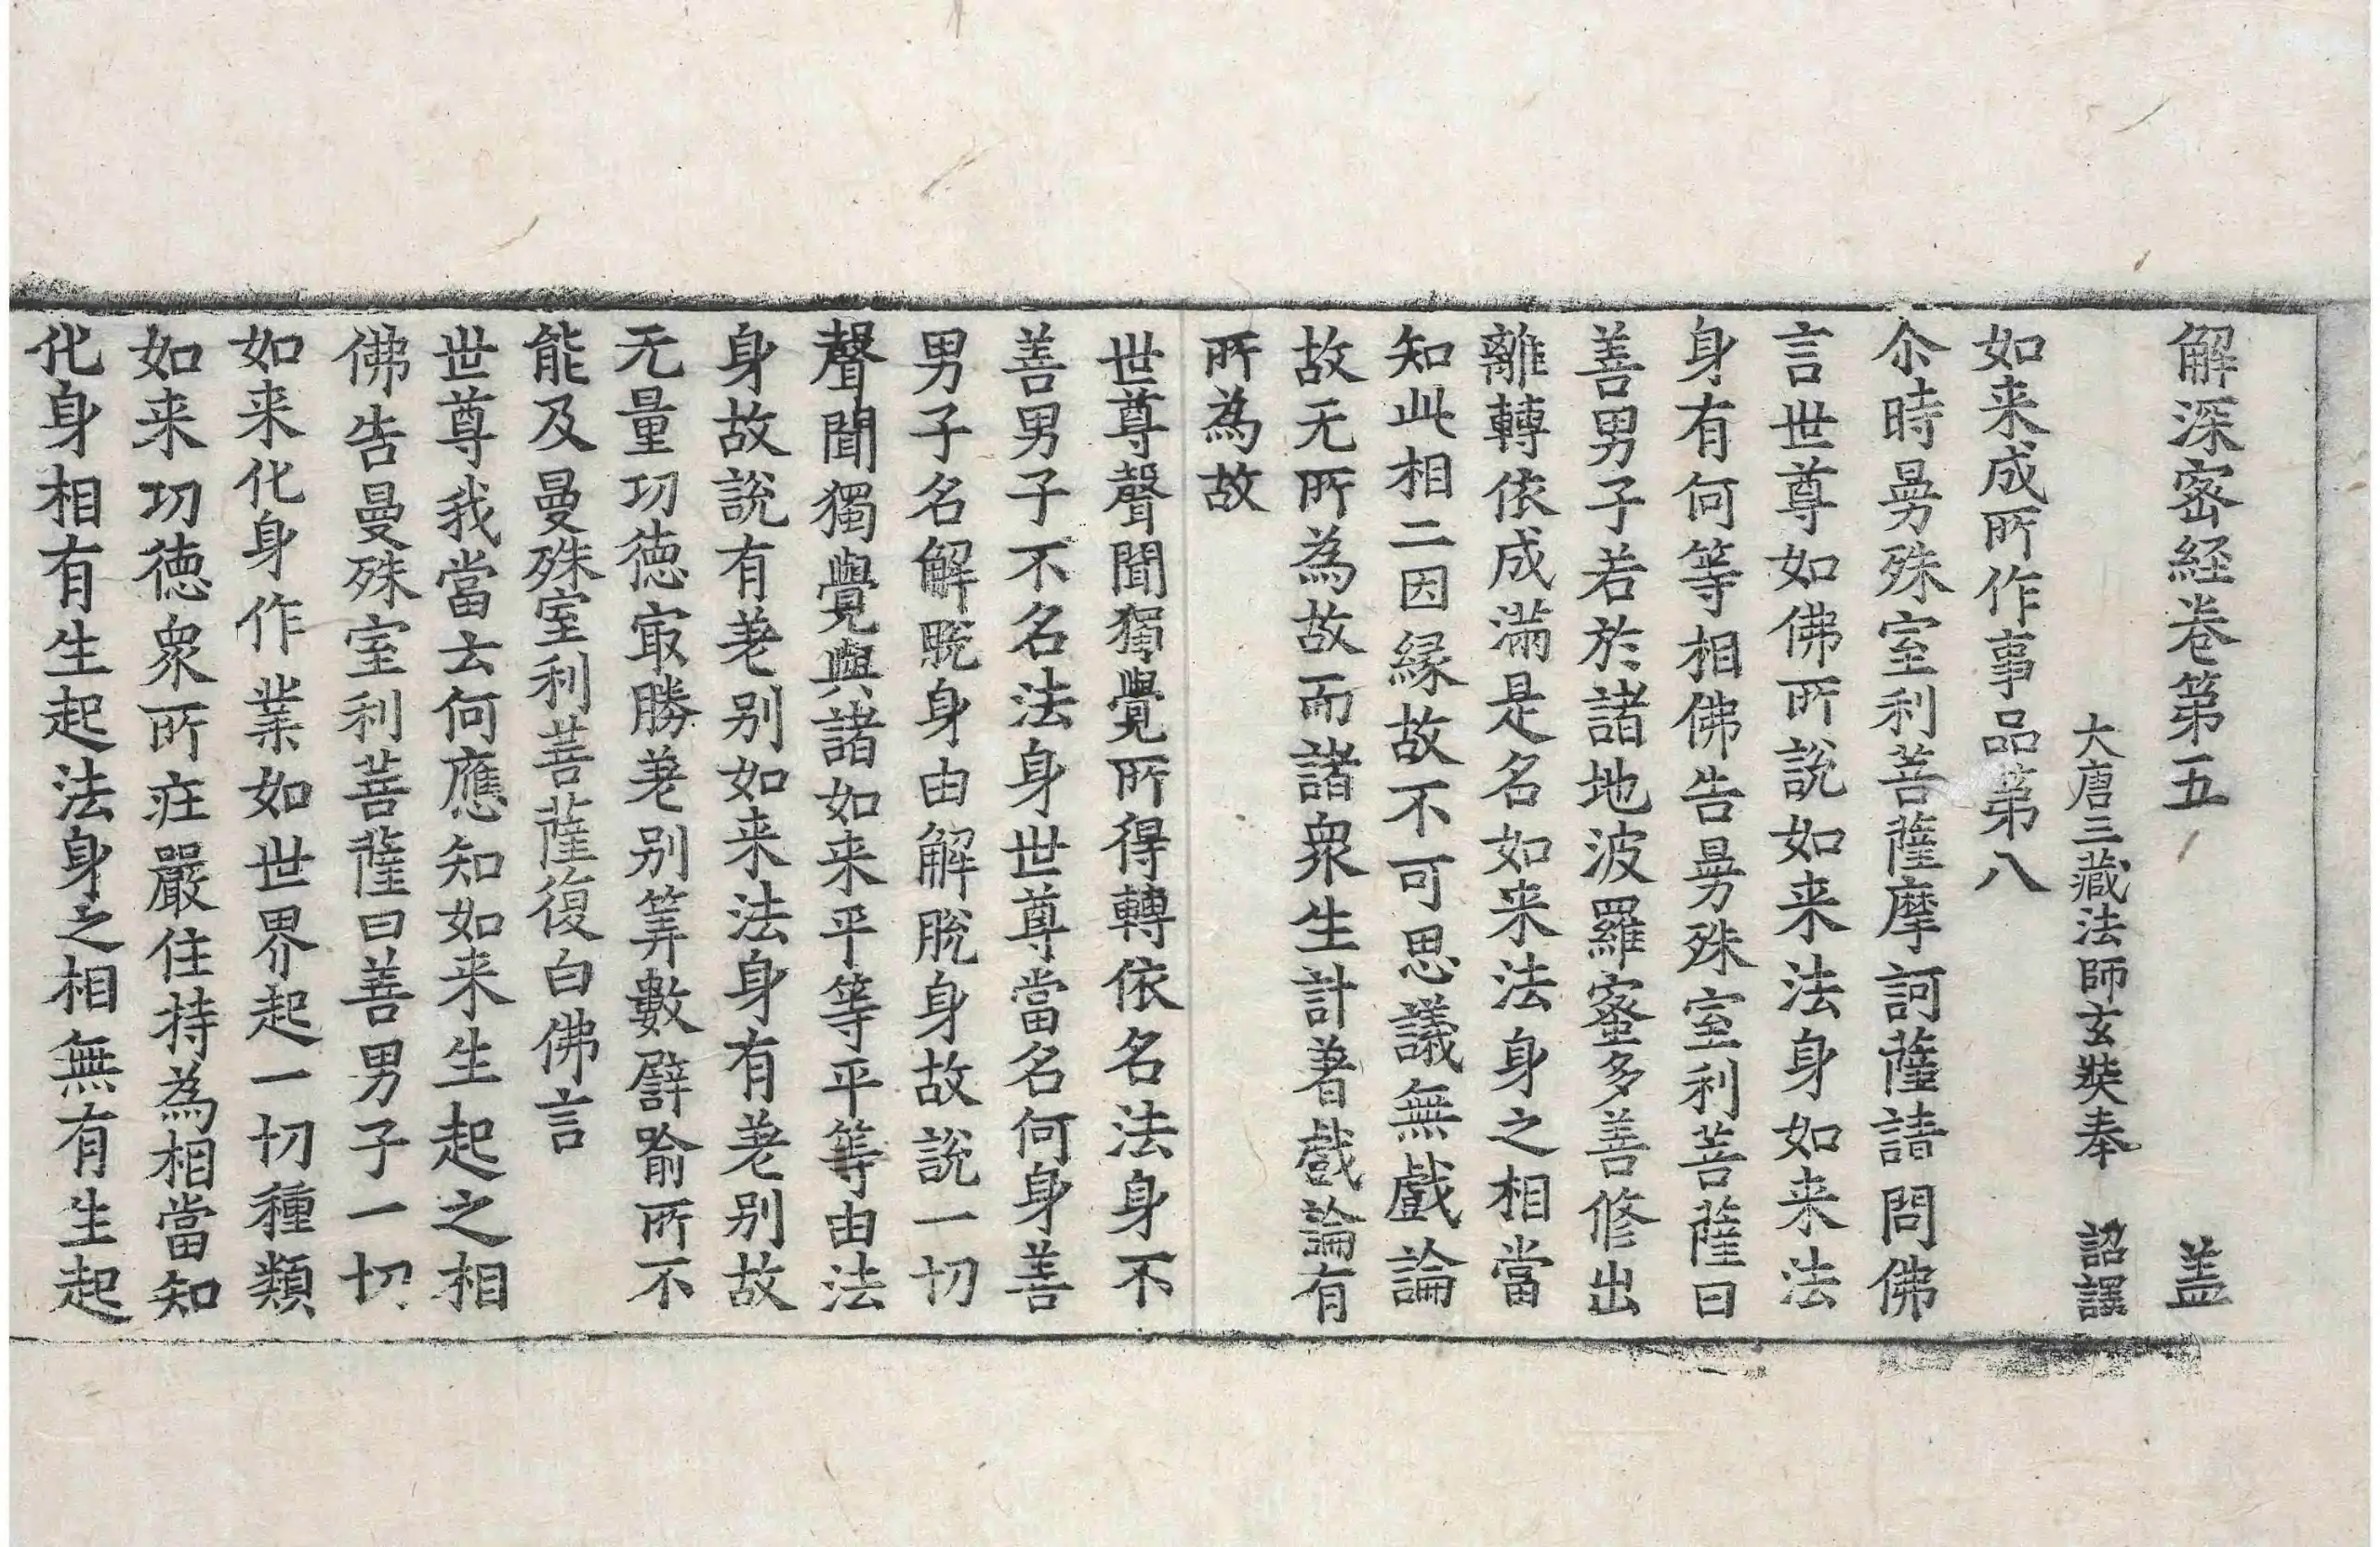 解深密経卷第五 盖
大唐三藏法師玄奘奉 詔譯
如来成所作事品第八
尒時曼殊室利菩薩摩訶薩請問佛
言世尊如佛所說如来法身如来法
身有何等相佛告曼殊室利菩薩曰
善男子若於諸地波羅蜜多善修出
離轉依成滿是名如来法身之相當
知此相二因緣故不可思議無戲論
故无所為故而諸衆生計著戲論有
所為故
世尊聲聞獨覺所得轉依名法身不
善男子不名法身世尊當名何身善
男子名解脫身由解脫身故說一切
聲聞獨覺與諸如来平等平等由法
身故說有差别如来法身有差别故
无量功德冣勝差别筭數譬喻所不
能及曼殊室利菩薩復白佛言
世尊我當云何應知如来生起之相
佛告曼殊室利菩薩曰善男子一切
如来化身作業如世界起一切種類
如来功德衆所莊嚴住持為相當知
化身相有生起法身之相無有生起